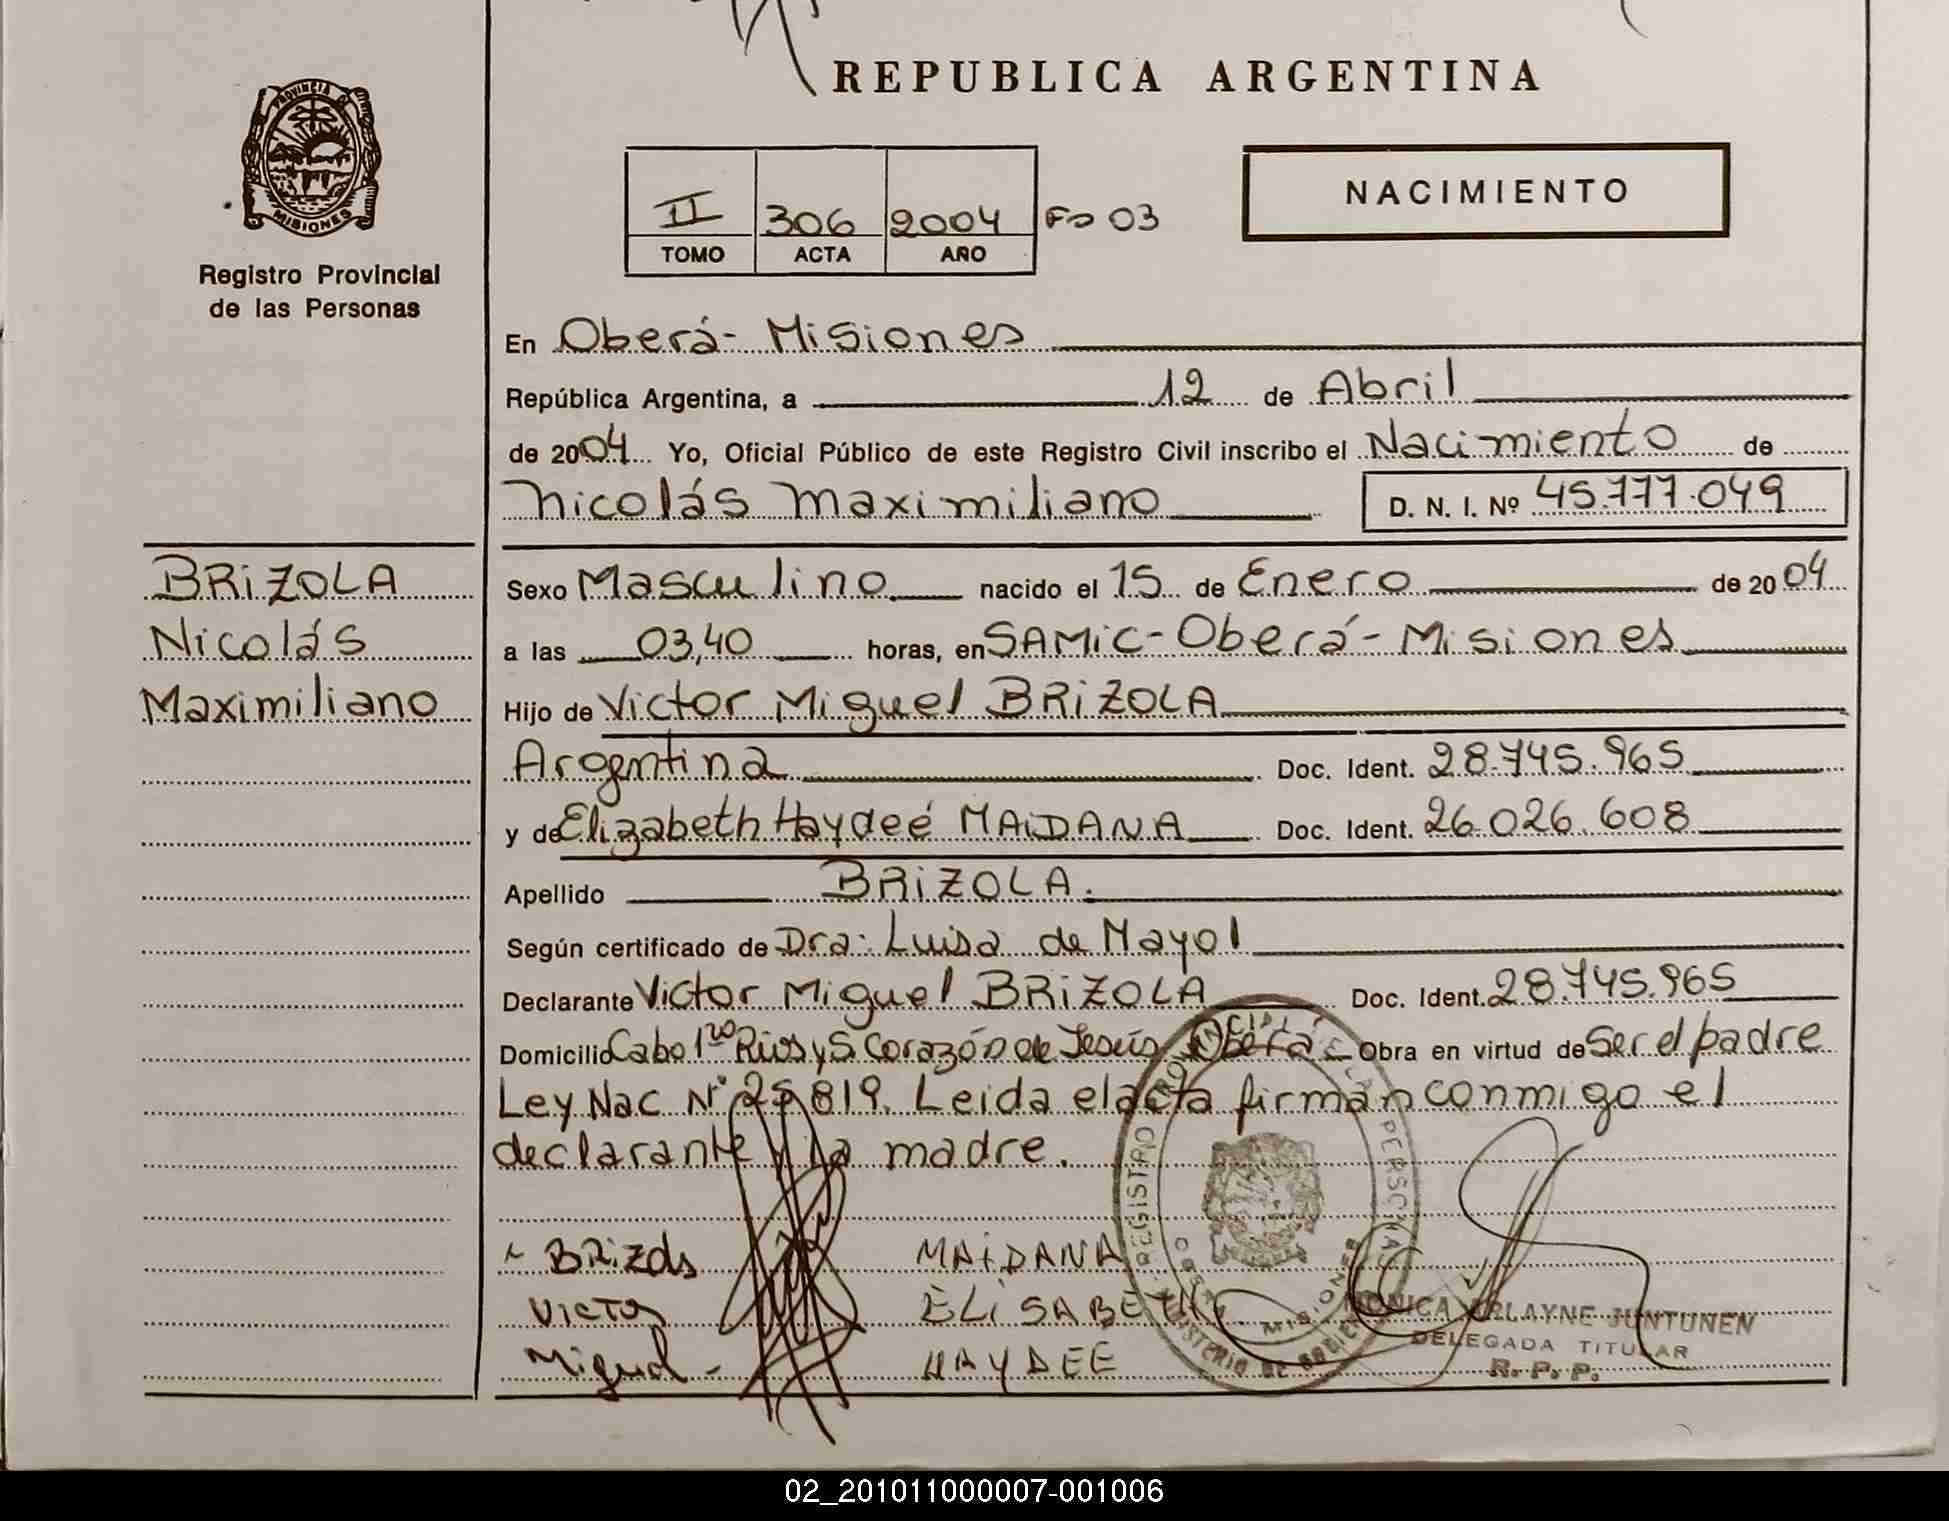 REPUBLICA ARGENTINA
PROVINCIA DE
MISIONES
Registro Provincial
de las Personas
II 306 2004 Fo 03
TOMO ACTA AÑO
NACIMIENTO
En Oberá - Misiones
República Argentina, a 12 de Abril
de 2004 Yo, Oficial Público de este Registro Civil inscribo el Nacimiento de
Nicolás Maximiliano D. N. I. Nº 45.777.049
BRiZOLA
Nicolás
Maximiliano
Sexo Masculino nacido el 15 de Enero de 2004
a las 03,40 horas, en SAMiC - Oberá - Misiones
Hijo de Victor Miguel BRiZOLA
Argentina Doc. Ident. 28.745.965
y de Elizabeth Haydeé MAiDANA Doc. Ident. 26.026.608
Apellido BRiZOLA.
Según certificado de Dra: Luisa de Mayol
Declarante Victor Miguel BRiZOLA Doc. Ident. 28.745.965
Domicilio Cabo 1ro Rios y S. Corazón de Jesús Oberá - Obra en virtud de Ser el padre
Ley Nac Nº 25.819. Leida el acta firman conmigo el
declarante y la madre.
BRizola MAiDANA
Victor ELiSABETH
Miguel - HAYDEE
REGISTRO PROVINCIAL DE LAS PERSONAS
OBERA - MISIONES
MINISTERIO DE GOBIERNO
MONICA ERLAYNE JUNTUNEN
DELEGADA TITULAR
R. P. P.
02_201011000007-001006